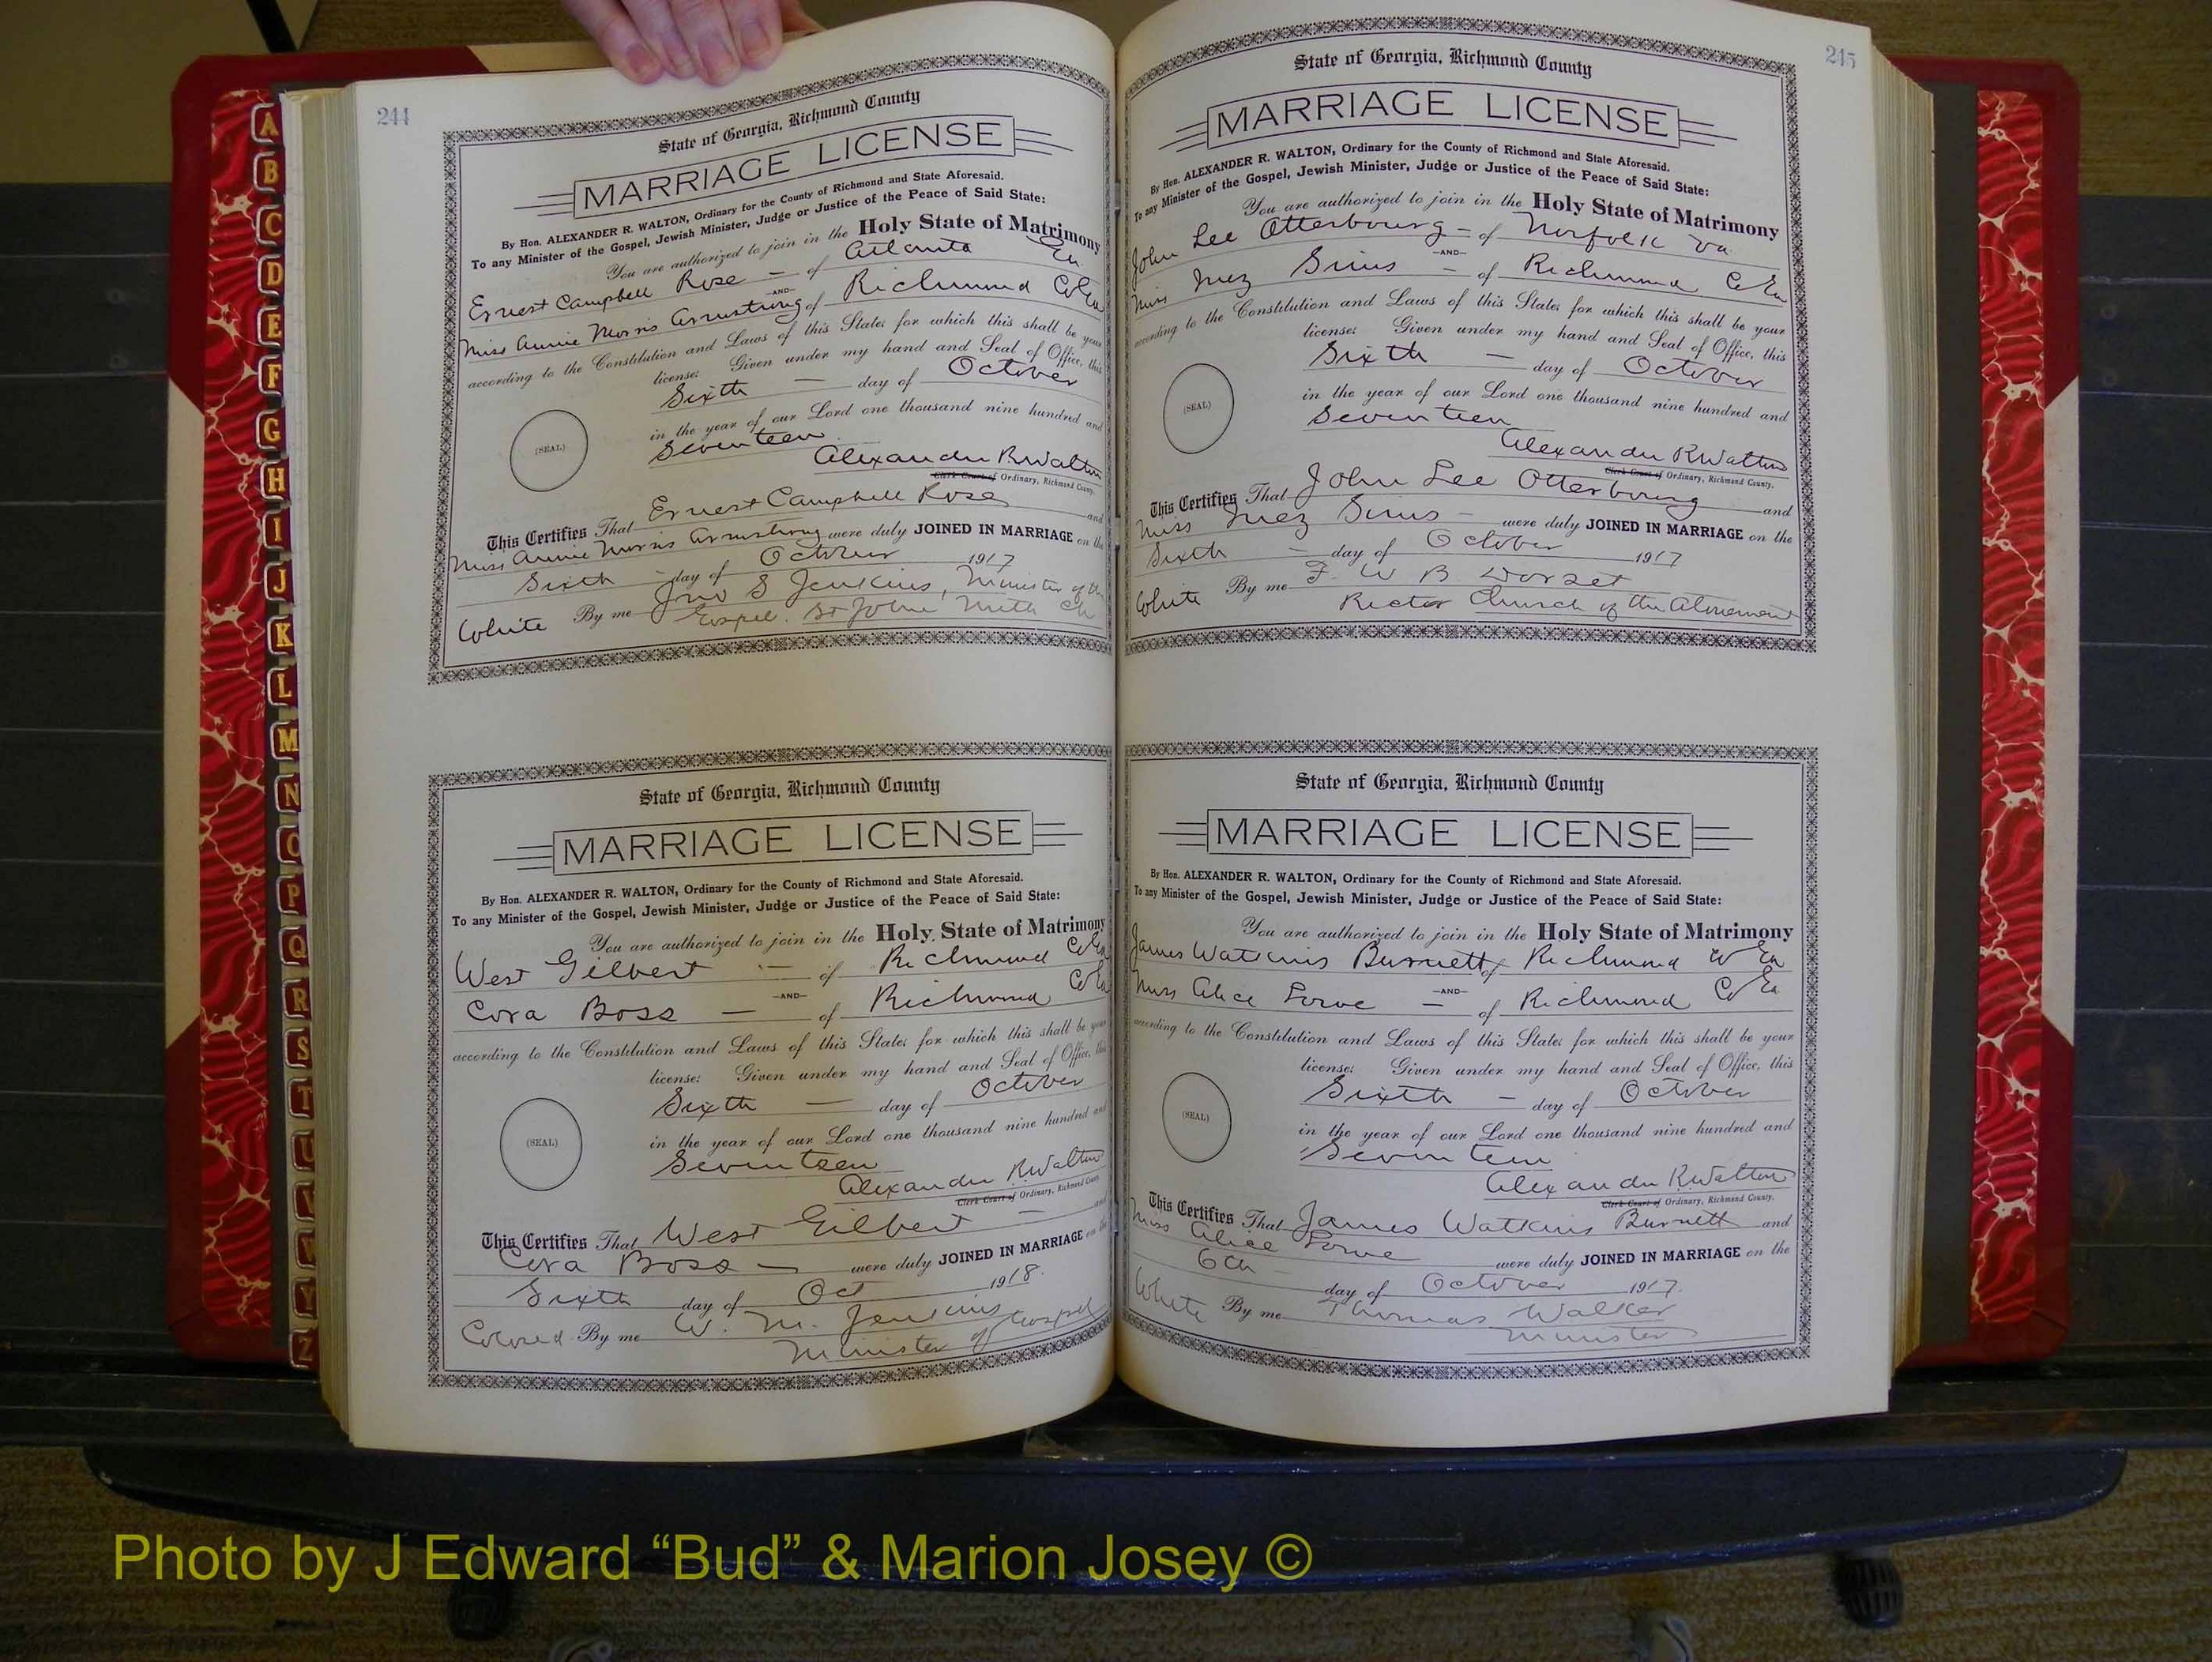 A
B
C
D
E
F
G
H
I
J
K
L
M
N
O
P
Q
R
S
T
U
V
W
Y
Z
244
State of Georgia, Richmond County
MARRIAGE LICENSE
By Hon. ALEXANDER R. WALTON, Ordinary for the County of Richmond and State Aforesaid.
To any Minister of the Gospel, Jewish Minister, Judge or Justice of the Peace of Said State:
You are authorized to join in the Holy State of Matrimony
Ernest Campbell Rose — of Atlanta Ga
—AND—
Miss Annie Morris Armstrong of Richmond Co Ga
according to the Constitution and Laws of this State; for which this shall be your
license: Given under my hand and Seal of Office, this
Sixth — day of October
in the year of our Lord one thousand nine hundred and
(SEAL)
Seventeen
Alexander R Walton
Clerk Court of Ordinary, Richmond County.
This Certifies That Ernest Campbell Rose and
Miss Annie Morris Armstrong were duly JOINED IN MARRIAGE on the
Sixth — day of October 1917
White By me Jno S Jenkins, Minister of the
Gospel. St John Meth Ch
State of Georgia, Richmond County
MARRIAGE LICENSE
By Hon. ALEXANDER R. WALTON, Ordinary for the County of Richmond and State Aforesaid.
To any Minister of the Gospel, Jewish Minister, Judge or Justice of the Peace of Said State:
You are authorized to join in the Holy State of Matrimony
West Gilbert — of Richmond Co Ga
—AND—
Cora Boss — of Richmond Co Ga
according to the Constitution and Laws of this State; for which this shall be your
license: Given under my hand and Seal of Office, this
Sixth — day of October
in the year of our Lord one thousand nine hundred and
(SEAL)
Seventeen
Alexander R Walton
Clerk Court of Ordinary, Richmond County.
This Certifies That West Gilbert — and
Cora Boss — were duly JOINED IN MARRIAGE on the
Sixth day of Oct 1918.
Colored By me W. M. Jenkins
Minister of Gospel
245
State of Georgia, Richmond County
MARRIAGE LICENSE
By Hon. ALEXANDER R. WALTON, Ordinary for the County of Richmond and State Aforesaid.
To any Minister of the Gospel, Jewish Minister, Judge or Justice of the Peace of Said State:
You are authorized to join in the Holy State of Matrimony
John Lee Otterbourg — of Norfolk Va.
—AND—
Miss Inez Sims — of Richmond Co Ga
according to the Constitution and Laws of this State; for which this shall be your
license: Given under my hand and Seal of Office, this
Sixth — day of October
in the year of our Lord one thousand nine hundred and
(SEAL)
Seventeen
Alexander R Walton
Clerk Court of Ordinary, Richmond County.
This Certifies That John Lee Otterbourg and
Miss Inez Sims — were duly JOINED IN MARRIAGE on the
Sixth — day of October 1917
White By me F. W B Dorset
Rector Church of the Atonement
State of Georgia, Richmond County
MARRIAGE LICENSE
By Hon. ALEXANDER R. WALTON, Ordinary for the County of Richmond and State Aforesaid.
To any Minister of the Gospel, Jewish Minister, Judge or Justice of the Peace of Said State:
You are authorized to join in the Holy State of Matrimony
James Watkins Burnett of Richmond Co Ga
—AND—
Miss Alice — of Richmond Co Ga
according to the Constitution and Laws of this State; for which this shall be your
license: Given under my hand and Seal of Office, this
Sixth — day of October
in the year of our Lord one thousand nine hundred and
(SEAL)
Seventeen
Alexander R Walton
Clerk Court of Ordinary, Richmond County.
This Certifies That James Watkins Burnett and
Miss Alice were duly JOINED IN MARRIAGE on the
6th day of October 1917.
White By me Thomas Walker
Minister
Photo by J Edward “Bud” & Marion Josey ©